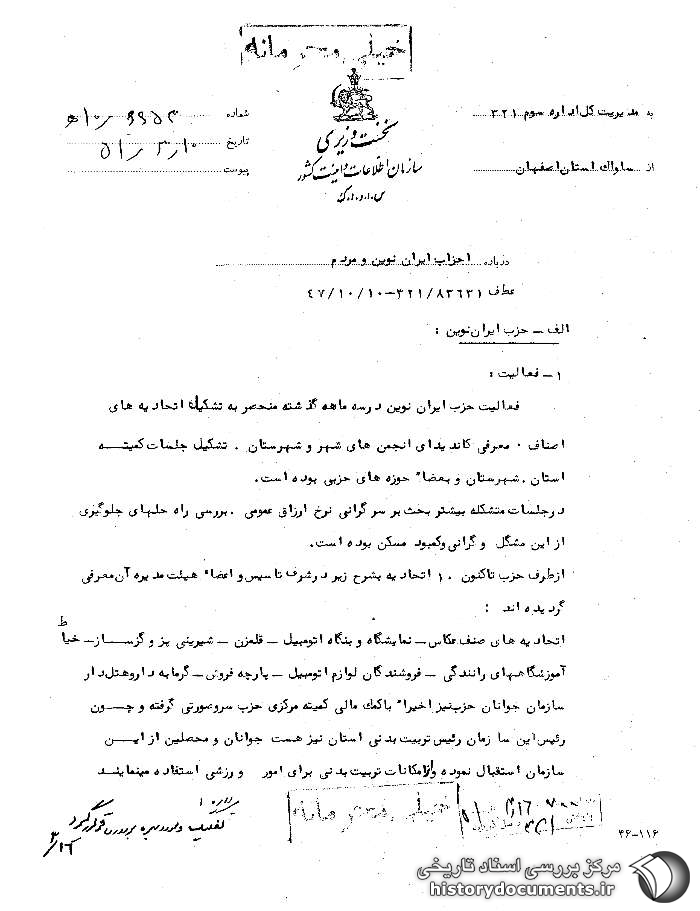 خیلی محرمانه
به مدیریت کل اداره سوم ۳۲۱
از ساواک استان اصفهان
نخست وزیری
سازمان اطلاعات و امنیت کشور
س.ا.و.ا.ک
شماره
تاریخ ۵۱/۳/۱۰
پیوست
درباره احزاب ایران نوین و مردم
عطف ۳۲۱/۸۳۶۳۱-۴۷/۱۰/۱۰
الف - حزب ایران نوین :
۱- فعالیت :
فعالیت حزب ایران نوین در سه ماهه گذشته منحصر به تشکیل اتحادیه های
اصناف . معرفی کاندیدای انجمن های شهر و شهرستان . تشکیل جلسات کمیته
استان . شهرستان و بعضا" حوزه های حزبی بوده است .
در جلسات متشکله بیشتر بحث بر سر گرانی نرخ ارزاق عمومی . بررسی راه حلهای جلوگیری
از این مشگل و گرانی وکمبود مسکن بوده است .
از طرف حزب تاکنون ۱۰ اتحادیه بشرح زیر در شرف تاسیس و اعضا" هیئت مدیره آن معرفی
گردیده اند :
اتحادیه های صنف عکاس - نمایشگاه و بنگاه اتومبیل - قلمزن - شیرینی پز و گزساز - خیاط
آموزشگاههای رانندگی - فروشندگان لوازم اتومبیل - پارچه فروش - گرمابه دار و هتل دار
سازمان جوانان حزب نیز اخیرا" با کمک مالی کمیته مرکزی حزب سر و صورتی گرفته و چون
رئیس این سازمان رئیس تربیت بدنی استان نیز هست جوانان و محصلین از این
سازمان استقبال نموده و از امکانات تربیت بدنی برای امور ورزشی استفاده مینمایند
خیلی محرمانه
۳۶-۱۱۶
۳/۱۶
مرکز بررسی اسناد تاریخی
historydocuments.ir